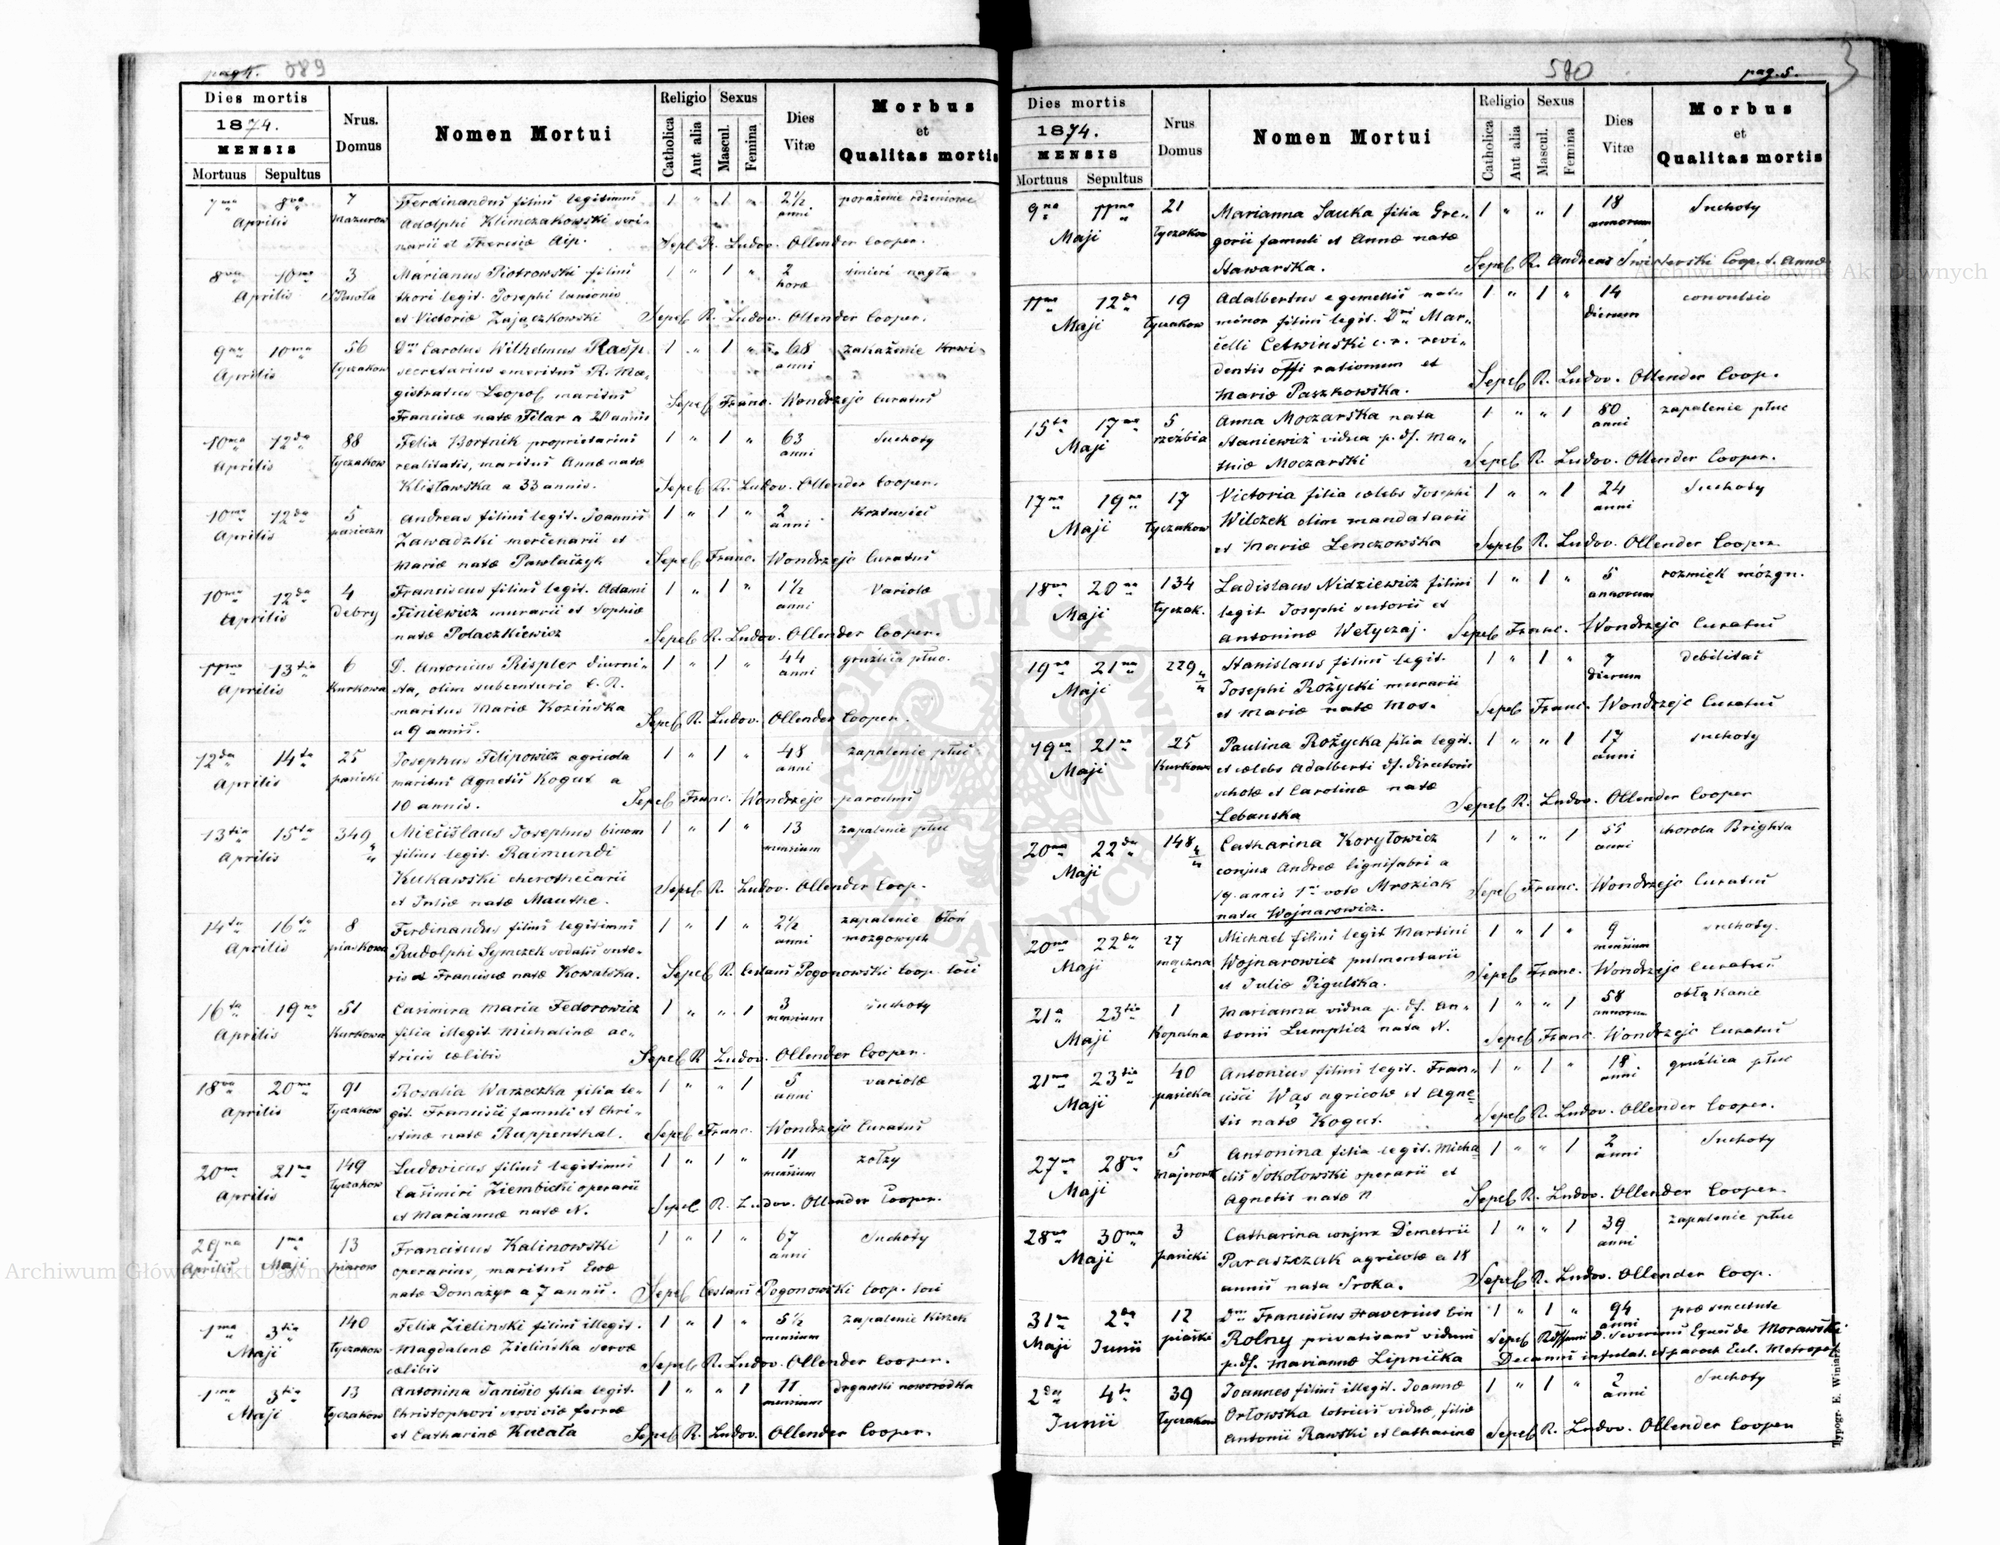 pag. 4. 589
Dies mortis
1874.
MENSIS
Mortuus Sepultus
Nrus. Domus
Nomen Mortui
Religio
Catholica
Aut alia
Sexus
Mascul.
Femina
Dies Vitæ
Morbus et Qualitas mortis
7ma 8va Aprilis
7 mazurow
Ferdinandus filius legitimus
Adolphi Klimczakowski
et Theresiæ
1 " 1 "
2½ anni
porażenie rdzeniowe
Sepel. R. Ludov. Ollender Cooper.
8va 10ma Aprilis
3
Marianus Piotrowski filius
thori legit. Josephi lanionis
et Victoriæ Zajączkowski
1 " 1 "
2 horæ
śmierć nagła
Sepel. R. Ludov. Ollender Cooper.
9na 10ma Aprilis
56 Łyczakow
Dnus Carolus Wilhelmus Rasp.
secretarius emeritus R. Ma-
gistratus Leopol. maritus
Francisæ natæ Filar a 28 annis
1 " 1 "
68 anni
zakażenie krwi
Sepel. Franc. Wondrzejc Curatus
10ma 12da Aprilis
88 Łyczakow
Felix Bortnik proprietarius
realitatis, maritus Annæ natæ
Klisławska a 33 annis.
1 " 1 "
63 anni
Suchoty
Sepel. R. Ludov. Ollender Cooper.
10ma 12da Aprilis
5
Andreas filius legit. Joannis
Zawadzki mercenarii et
Mariæ natæ Pawlaczyk
1 " 1 "
2 anni
Krztusiec
Sepel. Franc. Wondrzejc Curatus
10ma 12da Aprilis
4 Debry
Franciscus filius legit. Adami
Finiewicz murarii et Sophiæ
natæ Polaczkiewicz
1 " 1 "
1½ anni
Variolæ
Sepel. R. Ludov. Ollender Cooper.
11ma 13tia Aprilis
6 Kurkowa
D. Antonius Rispler diurni-
sta, olim
maritus Mariæ Kozińska
a 9 annis.
1 " 1 "
44 anni
gruźlica płuc.
Sepel. R. Ludov. Ollender Cooper.
12da 14ta Aprilis
25 pasieki
Josephus Filipowicz agricola
maritus Agnetis Kogut a
10 annis.
1 " 1 "
48 anni
zapalenie płuc
Sepel. Franc. Wondrzejc parochus
13tia 15ta Aprilis
349 4/4
Miecislaus Josephus binom
filius legit. Raimundi
Kukawski
et Juliæ natæ Mauthe.
1 " 1 "
13 mensium
zapalenie płuc
Sepel. R. Ludov. Ollender Coop.
14ta 16ta Aprilis
8 piaskowa
Ferdinandus filius legitimus
Rudolphi Symczek sodalis suto-
ris et Franciscæ natæ Kowalska.
1 " 1 "
2½ anni
zapalenie błon
mozgowych
Sepel. R. Ceslaus Pogonowski Coop. loci
16ta 19na Aprilis
51 Kurkowa
Casimira Maria Fedorowicz
filia illegit. Michalinæ ac-
tricis cælibis
1 " " 1
3 mensium
Suchoty
Sepel. R. Ludov. Ollender Cooper.
18va 20ma Aprilis
91 Łyczakow
Rosalia Warzeczka filia le-
git. Francisci famuli et Chri-
stinæ natæ Ruppenthal.
1 " " 1
5 anni
variolæ
Sepel. Franc. Wondrzejc Curatus
20ma 21ma Aprilis
149 Łyczakow
Ludovicus filius legitimus
Casimiri Ziembicki operarii
et Mariannæ natæ N.
1 " 1 "
11 mensium
zołzy
Sepel. R. Ludov. Ollender Cooper.
29na Aprilis 1ma Maji
13 piarow
Franciscus Kalinowski
operarius, maritus Evæ
natæ Domażyr a 7 annis.
1 " 1 "
67 anni
Suchoty
Sepel. Ceslaus Pogonowski Coop. loci
1ma 3tia Maji
140 Łyczakow
Felix Zielinski filius illegit.
Magdalenæ Zielińska servæ
cælibis
1 " 1 "
5½ mensium
zapalenie kiszek
Sepel. R. Ludov. Ollender Cooper.
1ma 3tia Maji
13 Łyczakow
Antonina Janisio filia legit.
Christophori servi viæ ferreæ
et Catharinæ Kucała
1 " " 1
11 mensium
drgawki noworodka
Sepel. R. Ludov. Ollender Cooper.
590 pag. 5.
3
Dies mortis
1874.
MENSIS
Mortuus Sepultus
Nrus Domus
Nomen Mortui
Religio
Catholica
Aut alia
Sexus
Mascul.
Femina
Dies Vitæ
Morbus et Qualitas mortis
9na 11ma Maji
21 Łyczakow
Marianna Sauka filia Gre-
gorii famuli et Annæ natæ
Stawarska.
1 " " 1
18 annorum
Suchoty
Sepel. R. Andreas Coop. S. Annæ
11ma 12da Maji
19 Łyczakow
Adalbertus e gemellis natu
minor filius legit. Dni Mar-
celli Cetwinski c. r. revi-
dentis offi rationum et
Mariæ Paszkowska.
1 " 1 "
14 dierum
convulsio
Sepel. R. Ludov. Ollender Coop.
15ta 17ma Maji
5 rzeźbia
Anna Moczarska nata
Staniewicz vidua p. df. Ma-
thiæ Moczarski
1 " " 1
80 anni
zapalenie płuc
Sepel. R. Ludov. Ollender Cooper.
17ma 19na Maji
17 Łyczakow
Victoria filia cælebs Josephi
Wilczek olim mandatarii
et Mariæ Lenczowska
1 " " 1
24 anni
Suchoty
Sepel. R. Ludov. Ollender Cooper.
18va 20ma Maji
134 Łyczak.
Ladislaus Nidziewicz filius
legit. Josephi sutoris et
Antoninæ Wełyczaj.
1 " 1 "
5 annorum
rozmiek mózgu.
Sepel. Franc. Wondrzejc Curatus
19na 21ma Maji
229 4/4
Stanislaus filius legit.
Josephi Rożycki murarii
et Mariæ natæ Mos.
1 " 1 "
7 dierum
debilitas
Sepel. Franc. Wondrzejc Curatus
19na 21ma Maji
25 Kurkowa
Paulina Rożycka filia legit.
et cælebs Adalberti df. directoris
scholæ et Carolinæ natæ
Lebanska
1 " " 1
17 anni
suchoty
Sepel. R. Ludov. Ollender Cooper
20ma 22da Maji
148 4/4
Catharina Koryłowicz
conjux Andreæ lignifabri a
19 annis 1o voto Mroziak
nata Wojnarowicz.
1 " " 1
55 anni
choroba Brighta
Sepel. Franc. Wondrzejc Curatus
20ma 22da Maji
27 mączna
Michael filius legit Martini
Wojnarowicz pulmentarii
et Juliæ Pigulska.
1 " 1 "
9 mensium
suchoty.
Sepel. Franc. Wondrzejc Curatus
21a 23tia Maji
1 Kopalna
Marianna vidua p. df. An-
tonii Lumplicz nata N.
1 " " 1
58 annorum
obłąkanie
Sepel. Franc. Wondrzejc Curatus
21ma 23tia Maji
40 pasieka
Antonius filius legit. Fran-
cisci Wąs agricolæ et Agne-
tis natæ Kogut.
1 " 1 "
18 anni
gruźlica płuc
Sepel. R. Ludov. Ollender Cooper.
27ma 28va Maji
5
Antonina filia legit. Micha-
elis Sokołowski operarii et
Agnetis natæ N
1 " " 1
2 anni
Suchoty
Sepel. R. Ludov. Ollender Cooper.
28va 30ma Maji
3 pasieki
Catharina conjux Demetrii
Paraszczak agricolæ a 18
annis nata Sroka.
1 " " 1
39 anni
zapalenie płuc
Sepel. R. Ludov. Ollender Coop.
31ma Maji 2da Junii
12 piaski
Dnus Franciscus Xaverius bin
Rolny privatisans viduus
p. df. Mariannæ Lipnicka
1 " 1 "
94 anni
præ senectute
Sepel. D. Severinus Eques de Morawski
Decanus infulat. et paroch Ecl. Metropol.
2da 4ta Junii
39 Łyczakow
Joannes filius illegit. Joannæ
Orłowska lotricis viduæ, filiæ
Antonii Rawski et Catharinæ
1 " 1 "
2 anni
Suchoty
Sepel. R. Ludov. Ollender Cooper
Typogr. E. Winiarz
Archiwum Główne Akt Dawnych
Archiwum Główne Akt Dawnych
ARCHIWUM GŁÓWNE AKT DAWNYCH